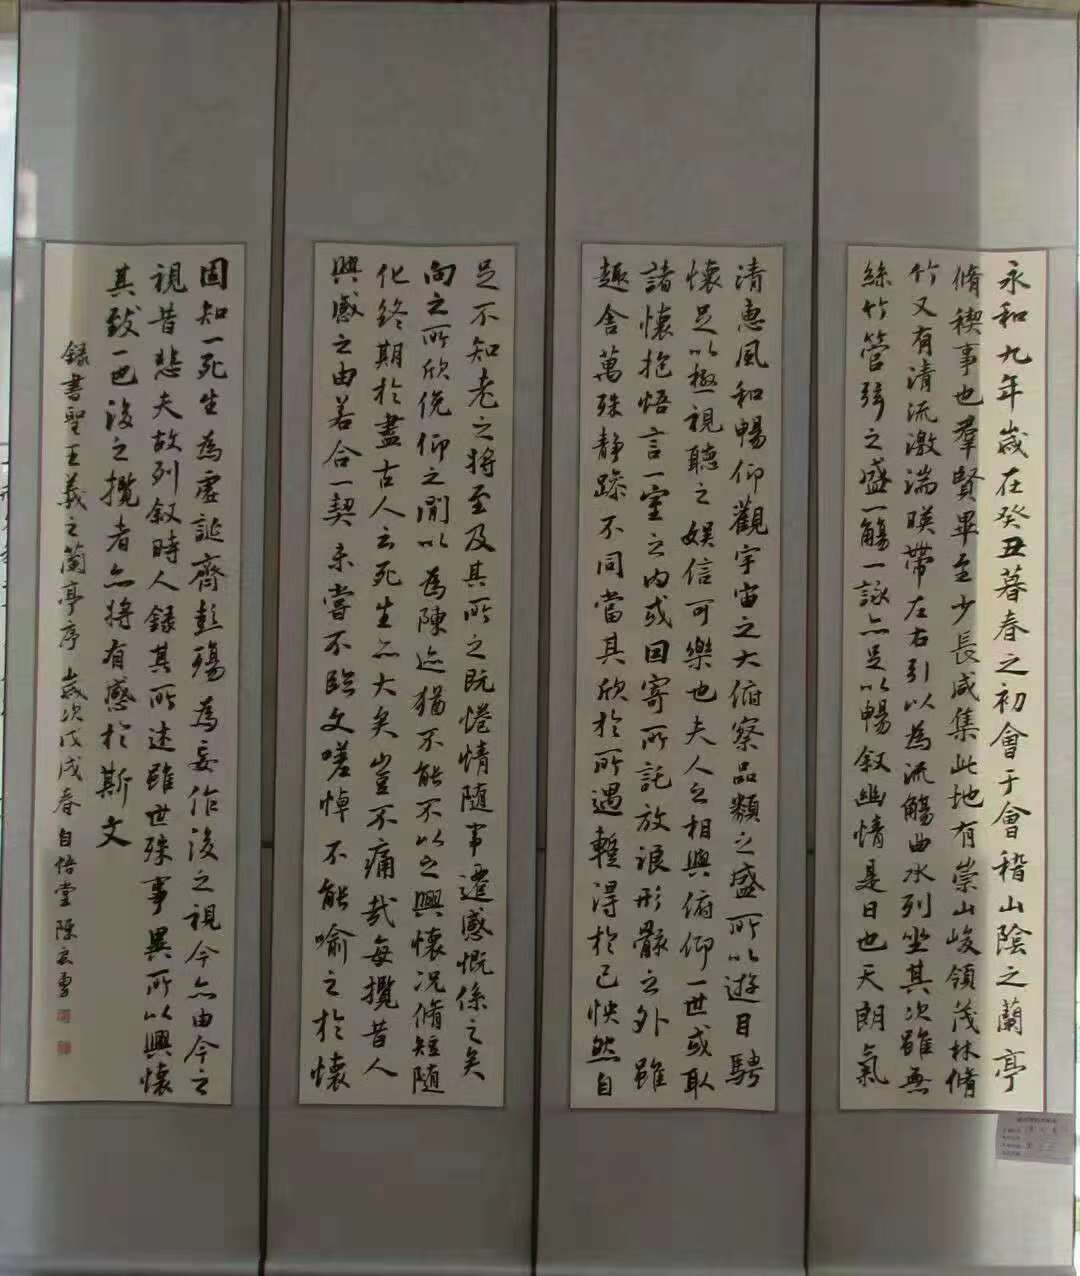 永和九年歲在癸丑暮春之初會于會稽山陰之蘭亭
脩稧事也羣賢畢至少長咸集此地有崇山峻領茂林脩
竹又有清流激湍暎帶左右引以為流觴曲水列坐其次雖無
絲竹管弦之盛一觴一詠亦足以暢叙幽情是日也天朗氣
清惠風和暢仰觀宇宙之大俯察品類之盛所以遊目騁
懷足以極視聽之娛信可樂也夫人之相與俯仰一世或取
諸懷抱悟言一室之內或因寄所託放浪形骸之外雖
趣舍萬殊静躁不同當其欣於所遇暫得於己怏然自
足不知老之將至及其所之既惓情隨事遷感慨係之矣
向之所欣俛仰之閒以為陳迹猶不能不以之興懷況脩短隨
化終期於盡古人云死生亦大矣豈不痛哉每攬昔人
興感之由若合一契未嘗不臨文嗟悼不能喻之於懷
固知一死生為虛誕齊彭殤為妄作後之視今亦由今之
視昔悲夫故列叙時人錄其所述雖世殊事異所以興懷
其致一也後之攬者亦將有感於斯文
錄書聖王羲之蘭亭序 歲次戊戌春 自悟堂 陳